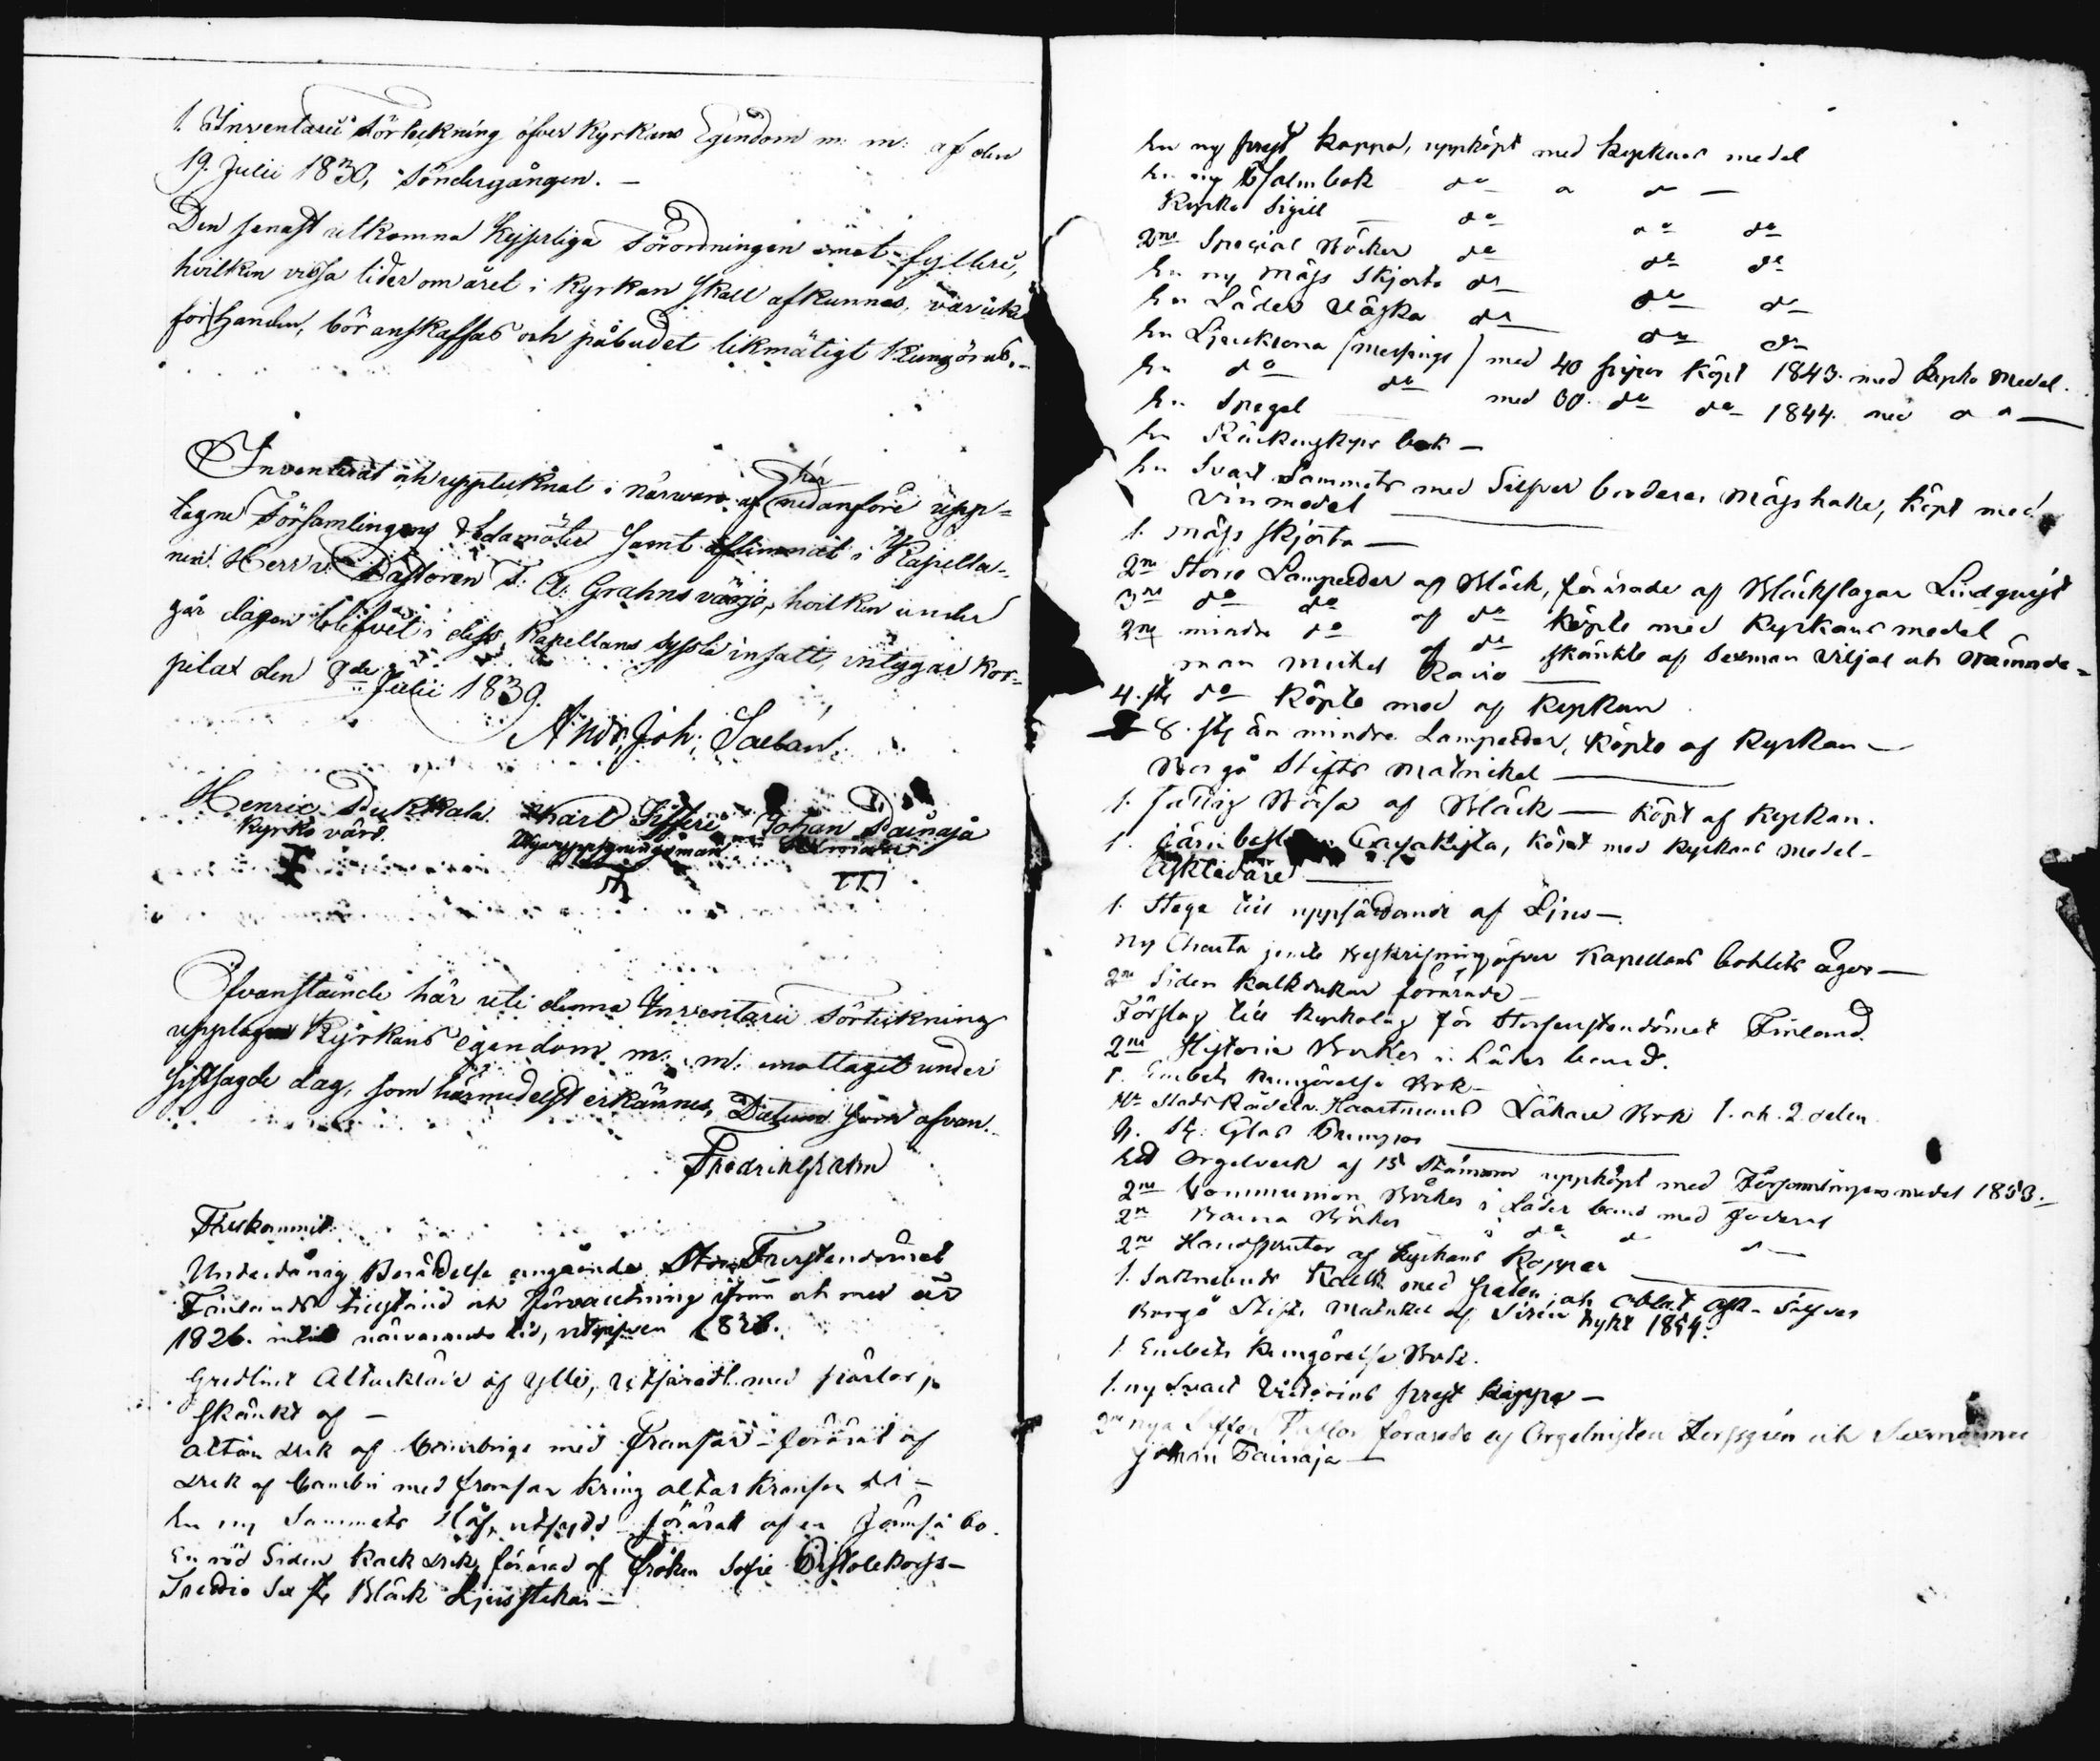 1. Inventarii Förtekning öfver Kyrkans Egendom m: m: af den
19. Julii 1830, Söndergången. —
Den senast utkomna Kejserliga Förordningen emot fylleri,
hvilken vissa tider om året i Kyrkan skall afkunnas, var icke
för handen, bör anskaffas och påbudet likmätigt kungöras. —
Inventerat och upptecknat i närvaro af här nedanföre upp=
tagne Församlingens Ledamöter samt aflemnat i Kapella=
nen Herr v. Pastoren F: A: Grahns värjo, hvilken under
går dagen blifvit i dess Kapellans syssla insatt, intygar Kor=
pilax den 8de Julii 1839.
And: Joh:
Henric Pukkala Karl Johan Painaja
Kyrko värd. Sexman
Ofvanstående här uti denna Inventarii Förtekning
upptagen Kyrkans egendom m: m: emottagit under
sistsagde dag, som härmedelst erkännes, Datum som ofvan.
Fredrik Grahn
Tillkommit
Underdånig Berättelse angående Stor Furstendömet
Finlands tillstånd och förvaltning från och med år
1826. intill närvarande tid, utgifven
Gredlint Altarkläde af Ylle, utsiradt med
skänkt af —
Altar duk af med Fransar – förärat af
duk af med fransar kring altar kransen
En ny Sammets Håf, förärat af en
En röd Siden Kalk duk, förärad af Fröken Sofie Pistolekors —
Tredio Sex st. Bläck Ljusstakar —
En ny prest kappa, uppköpt med Kyrkans medel
En ny Psalmbok do — do —
Kyrko Sigill — do do do
2ne Special Böcker do do do
En ny Mäss Skjorta do do do
En Läder Väska do do do
En Ljuskrona (messings) med 40 pipor köpt 1843. med Kyrko Medel.
En do do med 30. do do 1844. med do —
En Spegel —
En Räkenskaps bok —
En Svart Sammets med Silfver broderad Mäss hake, köpt med
Vin medel —
1. Mäss skjorta —
2ne Större Lampetter af Bläck, förärade af Bläckslagar Lindqvist
3ne do do af do köpte med Kyrkans medel
2ne mindre do af do skänkte af Sexman Viljal och Nämnde=
man Michel Raivo —
4. st. do köpte med af Kyrkan
8. st. än mindre Lampetter, köpte af Kyrkan —
Borgå Stifts Matrickel —
1. fattig Börsa af Bläck — köpt af Kyrkan.
1. Järn Cassakista, köpt med Kyrkans medel —
Åskledare —
1. Stege till uppsättande af Ljus —
Ny Charta jemte Beskrifning öfver Kapellans bohlets ägor —
2ne Siden Kalkdukar förärade —
Förslag till Kyrkolag för Storfurstendömet Finland.
2ne Historie Böcker i Läder band.
1. Embets kungörelse Bok —
Haartmans Läkare Bok 1. och 2. delen
st. Glas —
Ett Orgelverk af 15 Stämmor uppköpt med Församlingens medel 1853. —
2ne Communion Böcker i Läder band med foderal
2ne Barna Böcker i do d d —
2ne Handsprutor af Kyrkans Koppar —
1. Saknebuds Kalk med paten och oblat ask – Silfver
Borgå Stifts Matrikel af Sirén tryckt 1854.
1 Embets Kungörelse Bok.
1. ny svart prest kappa —
2ne nya förärade af Orgelnisten och Sexmannen
Johan Painaja —